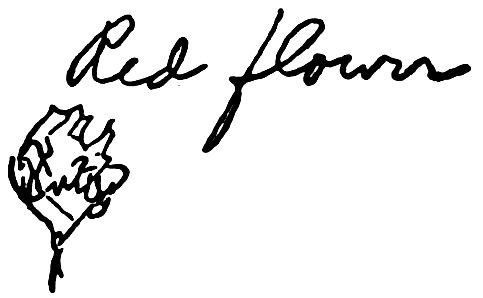 Red flower